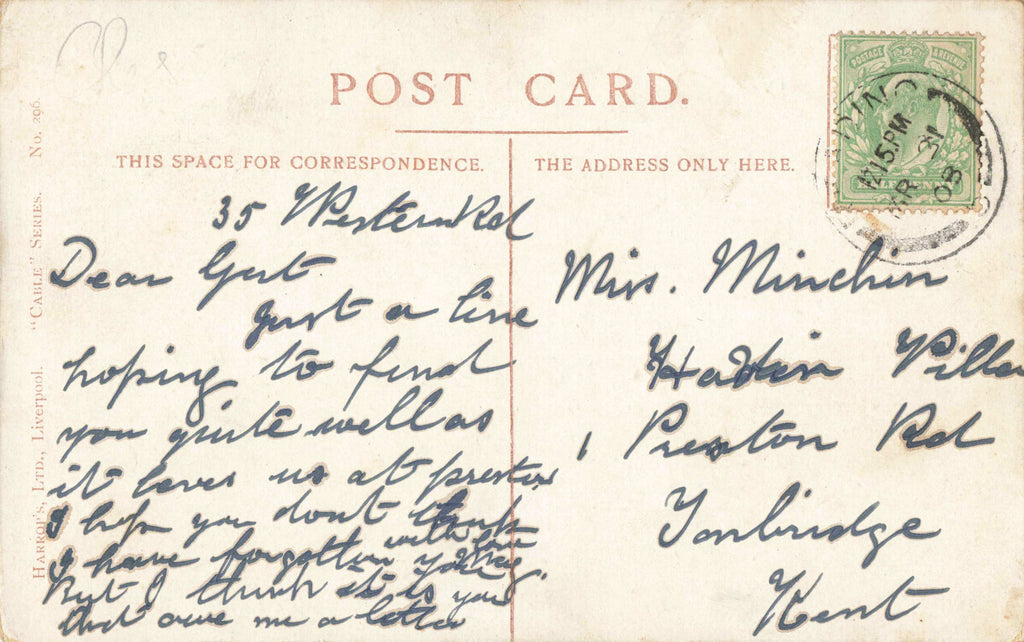 POST CARD.
THIS SPACE FOR CORRESPONDENCE.
THE ADDRESS ONLY HERE.
HARROP'S, LTD., Liverpool. "CABLE" SERIES. No. 296.
POSTAGE & REVENUE
12.15 PM
31
08
35 Western Rd
Dear Gert
Just a line
hoping to find
you quite well as
it leves us at preston
I hop you dont think
I have forgotten you
with love
But I think it is you
that owe me a letter
Miss. Minchin
Villa
1 Preston Rd
Tonbridge
Kent